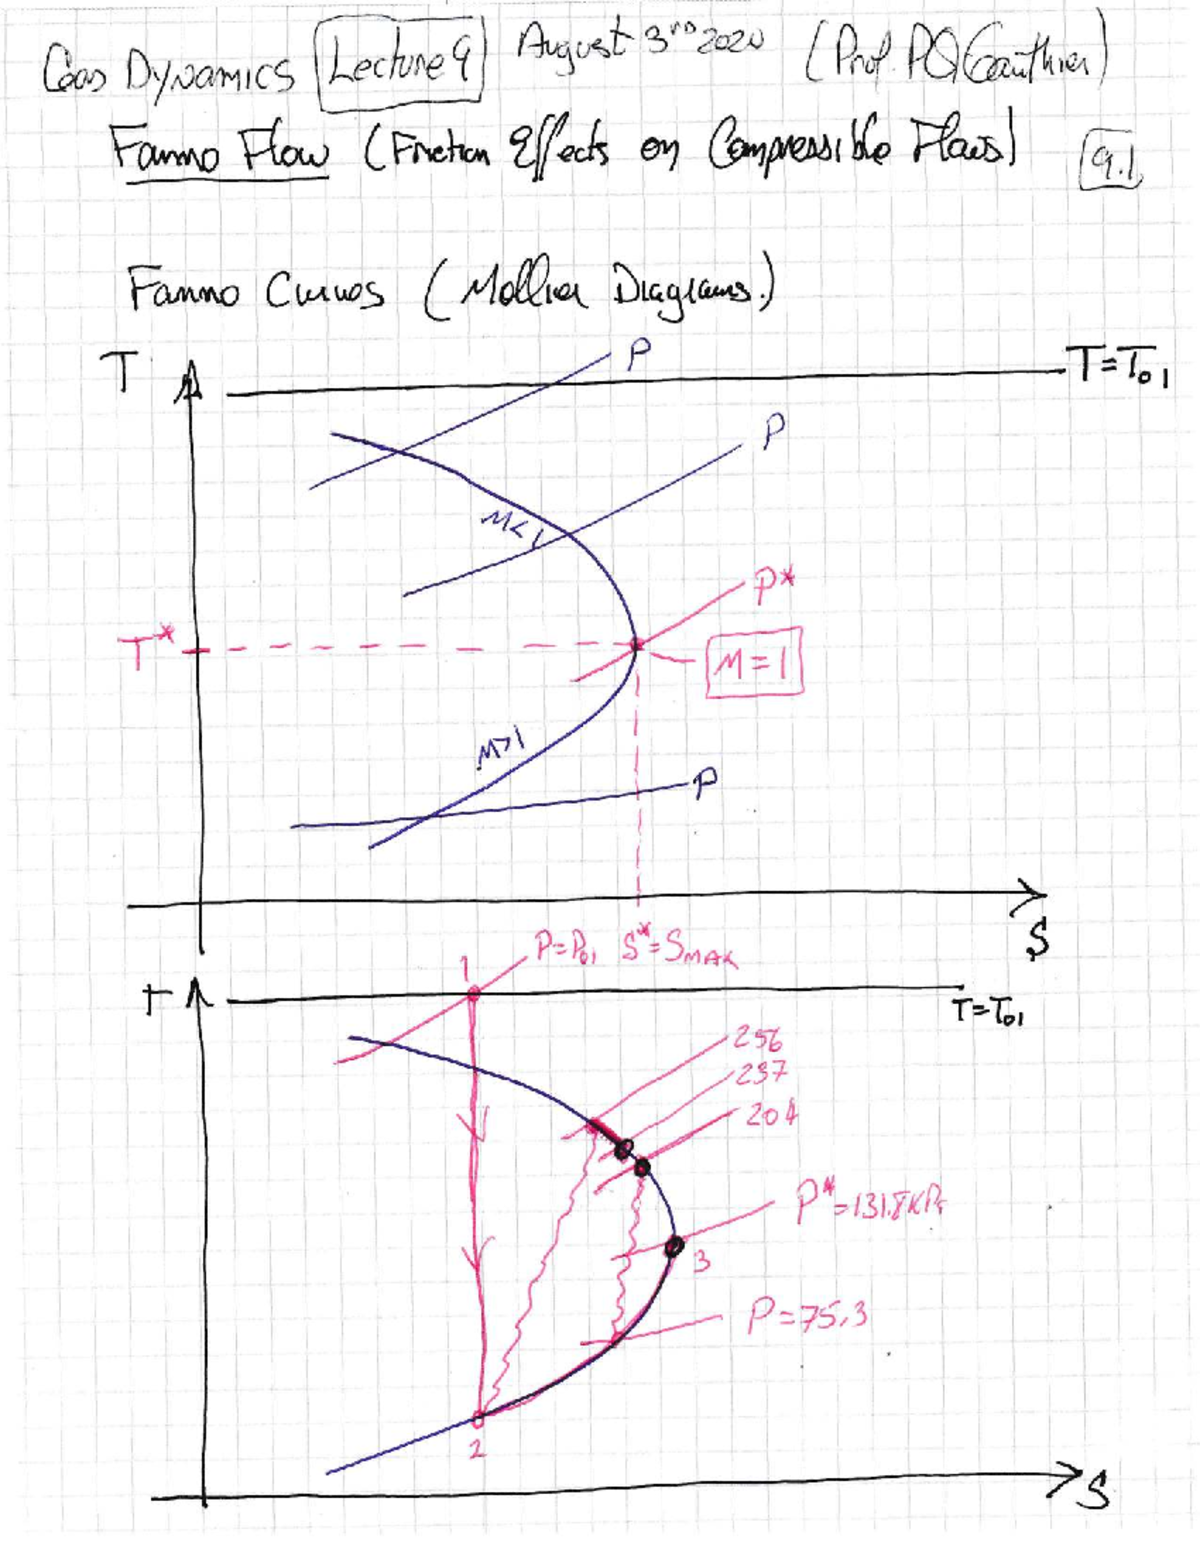 Gas Dynamics Lecture 9 August 3rd 2020 (Prof. PQ Gauthier)
Fanno Flow (Friction Effects on Compressible Flows) 9.1
Fanno Curves (Mollier Diagrams.)
P
T
T=To1
P
M<1
P*
T*
M=1
M>1
P
S
P=Po1 S*=SMAX
1
T
T=To1
256
237
204
P*=131.8KPa
3
P=75.3
2
S